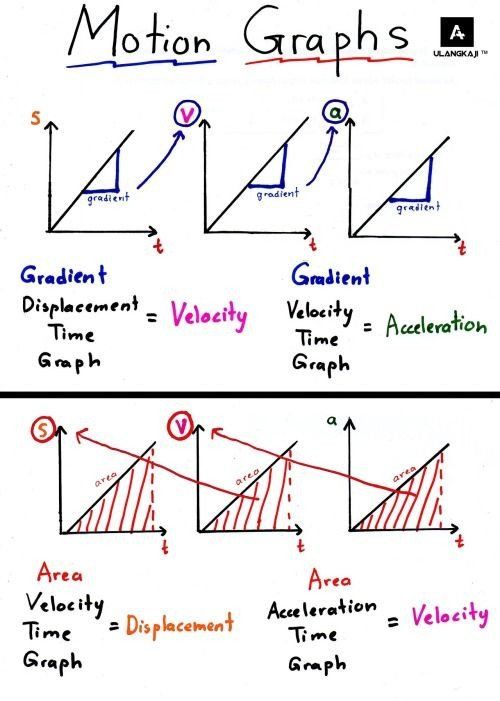 Motion Graphs
A
ULANGKAJI™
s
v
a
gradient
gradient
gradient
t
t
t
Gradient
Displacement
Time
Graph
= Velocity
Gradient
Velocity
Time
Graph
= Acceleration
s
v
a
area
area
area
t
t
t
Area
Velocity
Time
Graph
= Displacement
Area
Acceleration
Time
Graph
= Velocity